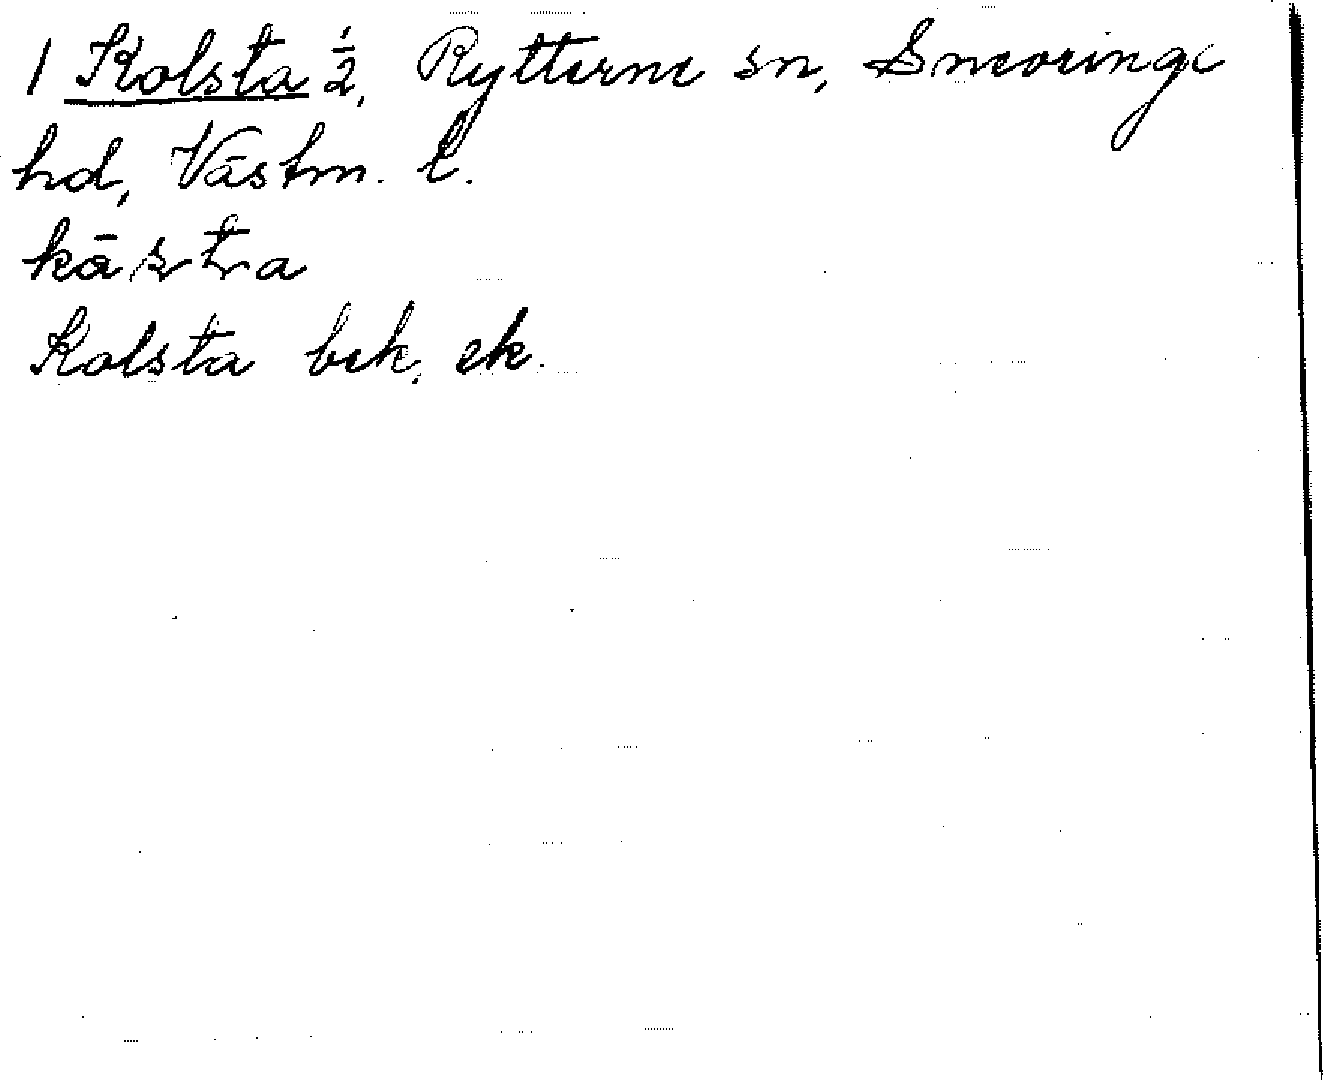 1 Kolsta ½, Rytterne sn, Snevringe
hd, Västm. l.
Kolsta bek, ek.